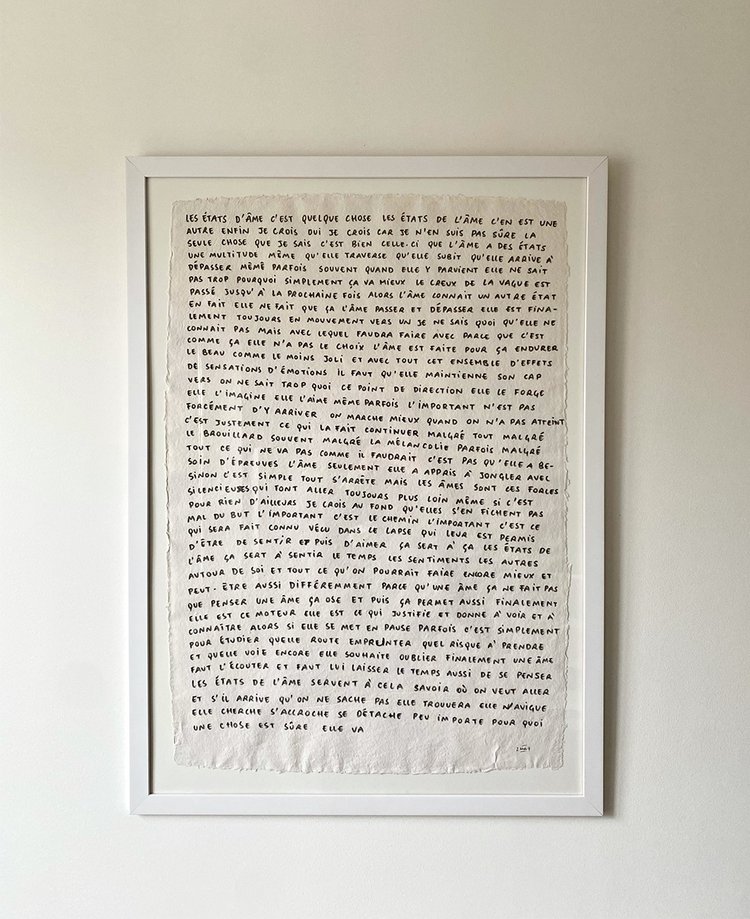 LES ÉTATS D'ÂME C'EST QUELQUE CHOSE LES ÉTATS DE L'ÂME C'EN EST UNE
AUTRE ENFIN JE CROIS OUI JE CROIS CAR JE N'EN SUIS PAS SÛRE LA
SEULE CHOSE QUE JE SAIS C'EST BIEN CELLE-CI QUE L'ÂME A DES ÉTATS
UNE MULTITUDE MÊME QU'ELLE TRAVERSE QU'ELLE SUBIT QU'ELLE ARRIVE À
DÉPASSER MÊME PARFOIS SOUVENT QUAND ELLE Y PARVIENT ELLE NE SAIT
PAS TROP POURQUOI SIMPLEMENT ÇA VA MIEUX LE CREUX DE LA VAGUE EST
PASSÉ JUSQU'À LA PROCHAINE FOIS ALORS L'ÂME CONNAIT UN AUTRE ÉTAT
EN FAIT ELLE NE FAIT QUE ÇA L'ÂME PASSER ET DÉPASSER ELLE EST FINA-
LEMENT TOUJOURS EN MOUVEMENT VERS UN JE NE SAIS QUOI QU'ELLE NE
CONNAIT PAS MAIS AVEC LEQUEL FAUDRA FAIRE AVEC PARCE QUE C'EST
COMME ÇA ELLE N'A PAS LE CHOIX L'ÂME EST FAITE POUR ÇA ENDURER
LE BEAU COMME LE MOINS JOLI ET AVEC TOUT CET ENSEMBLE D'EFFETS
DE SENSATIONS D'ÉMOTIONS IL FAUT QU'ELLE MAINTIENNE SON CAP
VERS ON NE SAIT TROP QUOI CE POINT DE DIRECTION ELLE LE FORGE
ELLE L'IMAGINE ELLE L'AIME MÊME PARFOIS L'IMPORTANT N'EST PAS
FORCÉMENT D'Y ARRIVER ON MARCHE MIEUX QUAND ON N'A PAS ATTEINT
C'EST JUSTEMENT CE QUI LA FAIT CONTINUER MALGRÉ TOUT MALGRÉ
LE BROUILLARD SOUVENT MALGRÉ LA MÉLANCOLIE PARFOIS MALGRÉ
TOUT CE QUI NE VA PAS COMME IL FAUDRAIT C'EST PAS QU'ELLE A BE-
SOIN D'ÉPREUVES L'ÂME SEULEMENT ELLE A APPRIS À JONGLER AVEC
SINON C'EST SIMPLE TOUT S'ARRÊTE MAIS LES ÂMES SONT CES FORCES
SILENCIEUSES QUI FONT ALLER TOUJOURS PLUS LOIN MÊME SI C'EST
POUR RIEN D'AILLEURS JE CROIS AU FOND QU'ELLES S'EN FICHENT PAS
MAL DU BUT L'IMPORTANT C'EST LE CHEMIN L'IMPORTANT C'EST CE
QUI SERA FAIT CONNU VÉCU DANS LE LAPSE QUI LEUR EST PERMIS
D'ÊTRE DE SENTIR ET PUIS D'AIMER ÇA SERT À ÇA LES ÉTATS DE
L'ÂME ÇA SERT À SENTIR LE TEMPS LES SENTIMENTS LES AUTRES
AUTOUR DE SOI ET TOUT CE QU'ON POURRAIT FAIRE ENCORE MIEUX ET
PEUT-ÊTRE AUSSI DIFFÉREMMENT PARCE QU'UNE ÂME ÇA NE FAIT PAS
QUE PENSER UNE ÂME ÇA OSE ET PUIS ÇA PERMET AUSSI FINALEMENT
ELLE EST CE MOTEUR ELLE EST CE QUI JUSTIFIE ET DONNE À VOIR ET À
CONNAÎTRE ALORS SI ELLE SE MET EN PAUSE PARFOIS C'EST SIMPLEMENT
POUR ÉTUDIER QUELLE ROUTE EMPRUNTER QUEL RISQUE À PRENDRE
ET QUELLE VOIE ENCORE ELLE SOUHAITE OUBLIER FINALEMENT UNE ÂME
FAUT L'ÉCOUTER ET FAUT LUI LAISSER LE TEMPS AUSSI DE SE PENSER
LES ÉTATS DE L'ÂME SERVENT À CELA SAVOIR OÙ ON VEUT ALLER
ET S'IL ARRIVE QU'ON NE SACHE PAS ELLE TROUVERA ELLE NAVIGUE
ELLE CHERCHE S'ACCROCHE SE DÉTACHE PEU IMPORTE POUR QUOI
UNE CHOSE EST SÛRE ELLE VA